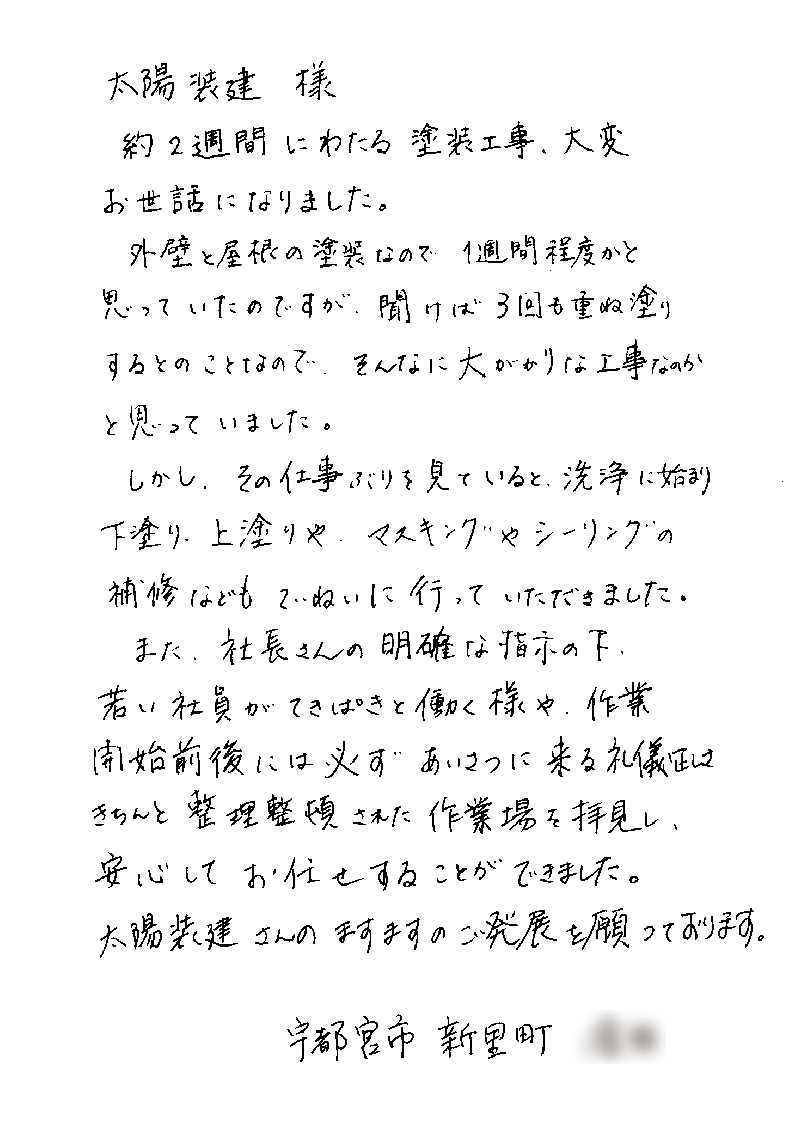 太陽装建 様
約2週間にわたる塗装工事、大変
お世話になりました。
外壁と屋根の塗装なので1週間程度かと
思っていたのですが、聞けば3回も重ね塗り
するとのことなので、そんなに大がかりな工事なのか
と思っていました。
しかし、その仕事ぶりを見ていると、洗浄に始まり
下塗り、上塗りや、マスキングやシーリングの
補修などもていねいに行っていただきました。
また、社長さんの明確な指示の下、
若い社員がてきぱきと働く様や、作業
開始前後には必ずあいさつに来る礼儀正しさ
きちんと整理整頓された作業場を拝見し、
安心してお任せすることができました。
太陽装建さんのますますのご発展を願っております。
宇都宮市 新里町